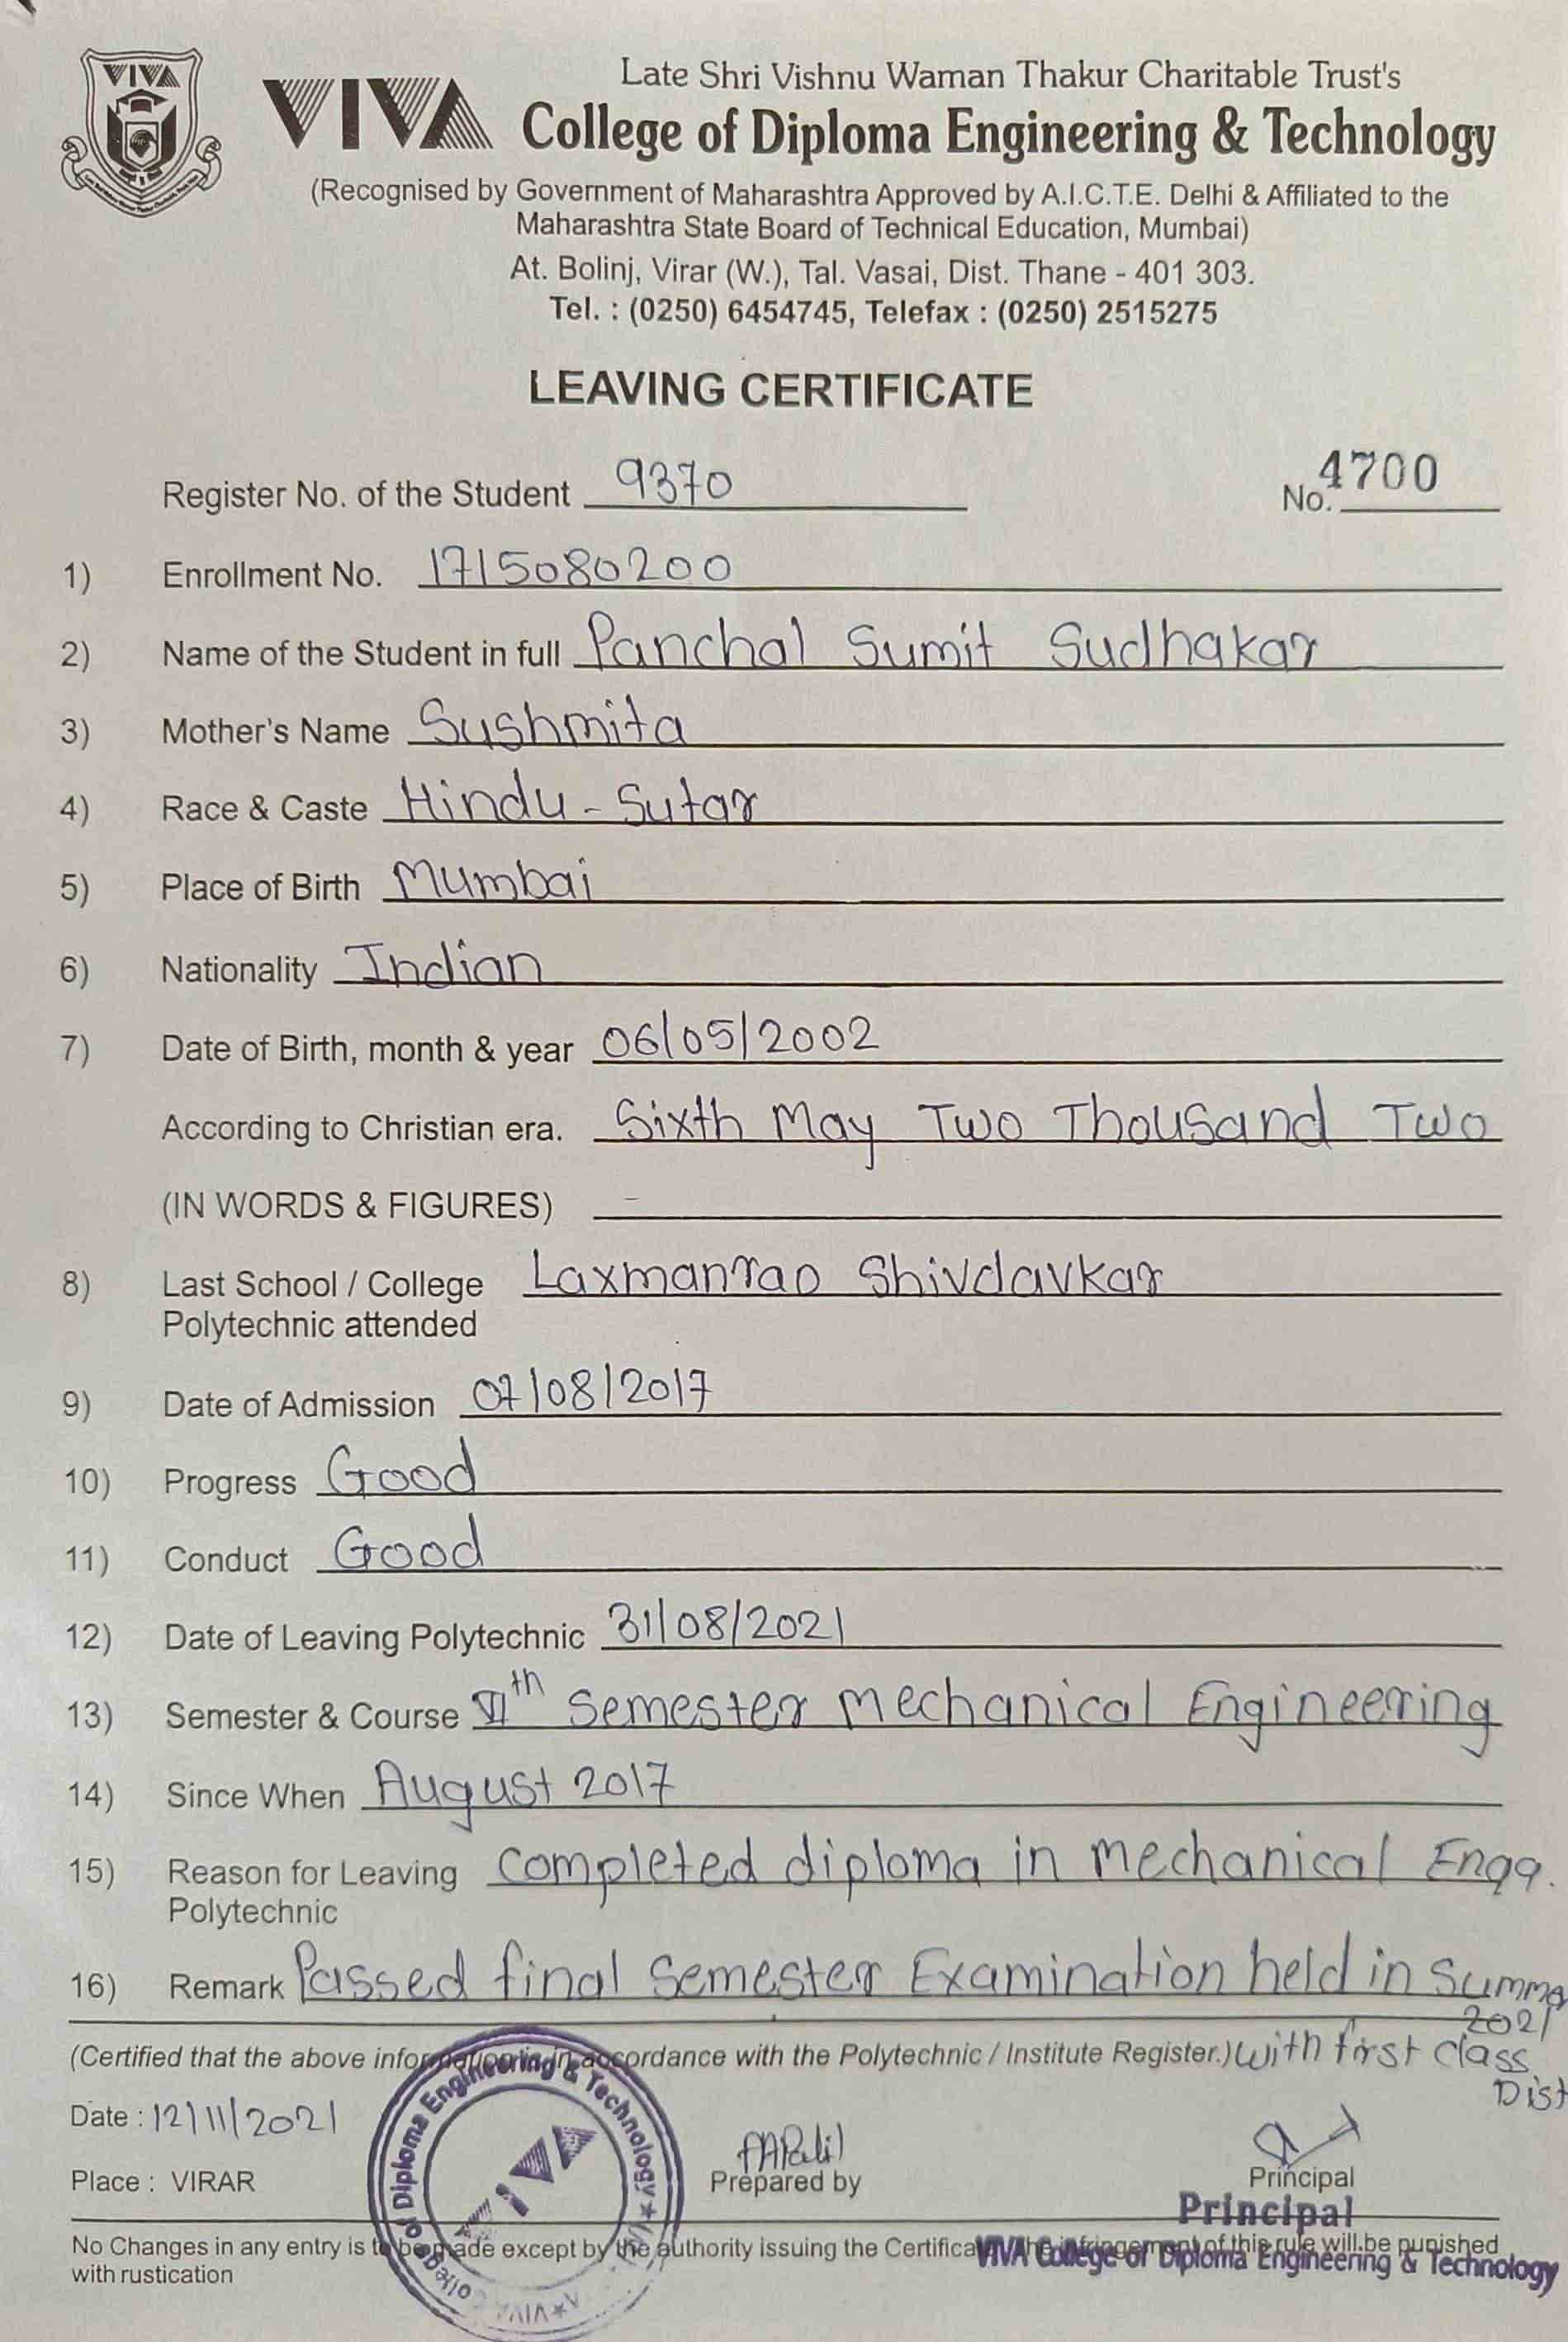 VIVA
VIVA
Late Shri Vishnu Waman Thakur Charitable Trust's
College of Diploma Engineering & Technology
(Recognised by Government of Maharashtra Approved by A.I.C.T.E. Delhi & Affiliated to the
Maharashtra State Board of Technical Education, Mumbai)
At. Bolinj, Virar (W.), Tal. Vasai, Dist. Thane - 401 303.
Tel. : (0250) 6454745, Telefax : (0250) 2515275
LEAVING CERTIFICATE
Register No. of the Student 9370 No. 4700
1) Enrollment No. 1715080200
2) Name of the Student in full Panchal Sumit Sudhakar
3) Mother's Name Sushmita
4) Race & Caste Hindu - Sutar
5) Place of Birth Mumbai
6) Nationality Indian
7) Date of Birth, month & year 06/05/2002
According to Christian era. Sixth May Two Thousand Two
(IN WORDS & FIGURES) -
8) Last School / College Laxmanrao Shivdavkar
Polytechnic attended
9) Date of Admission 07/08/2017
10) Progress Good
11) Conduct Good
12) Date of Leaving Polytechnic 31/08/2021
13) Semester & Course VIth Semester Mechanical Engineering
14) Since When August 2017
15) Reason for Leaving completed diploma in Mechanical Engg.
Polytechnic
16) Remark Passed final Semester Examination held in Summe
2021
(Certified that the above information is in accordance with the Polytechnic / Institute Register.) with first class
Dist
Date : 12/11/2021
Place : VIRAR
Prepared by
Principal
Principal
VIVA College of Diploma Engineering & Technology
No Changes in any entry is to be made except by the authority issuing the Certificate infringement of this rule will be punished
with rustication
College of Diploma Engineering & Technology
VIVA
VIVA